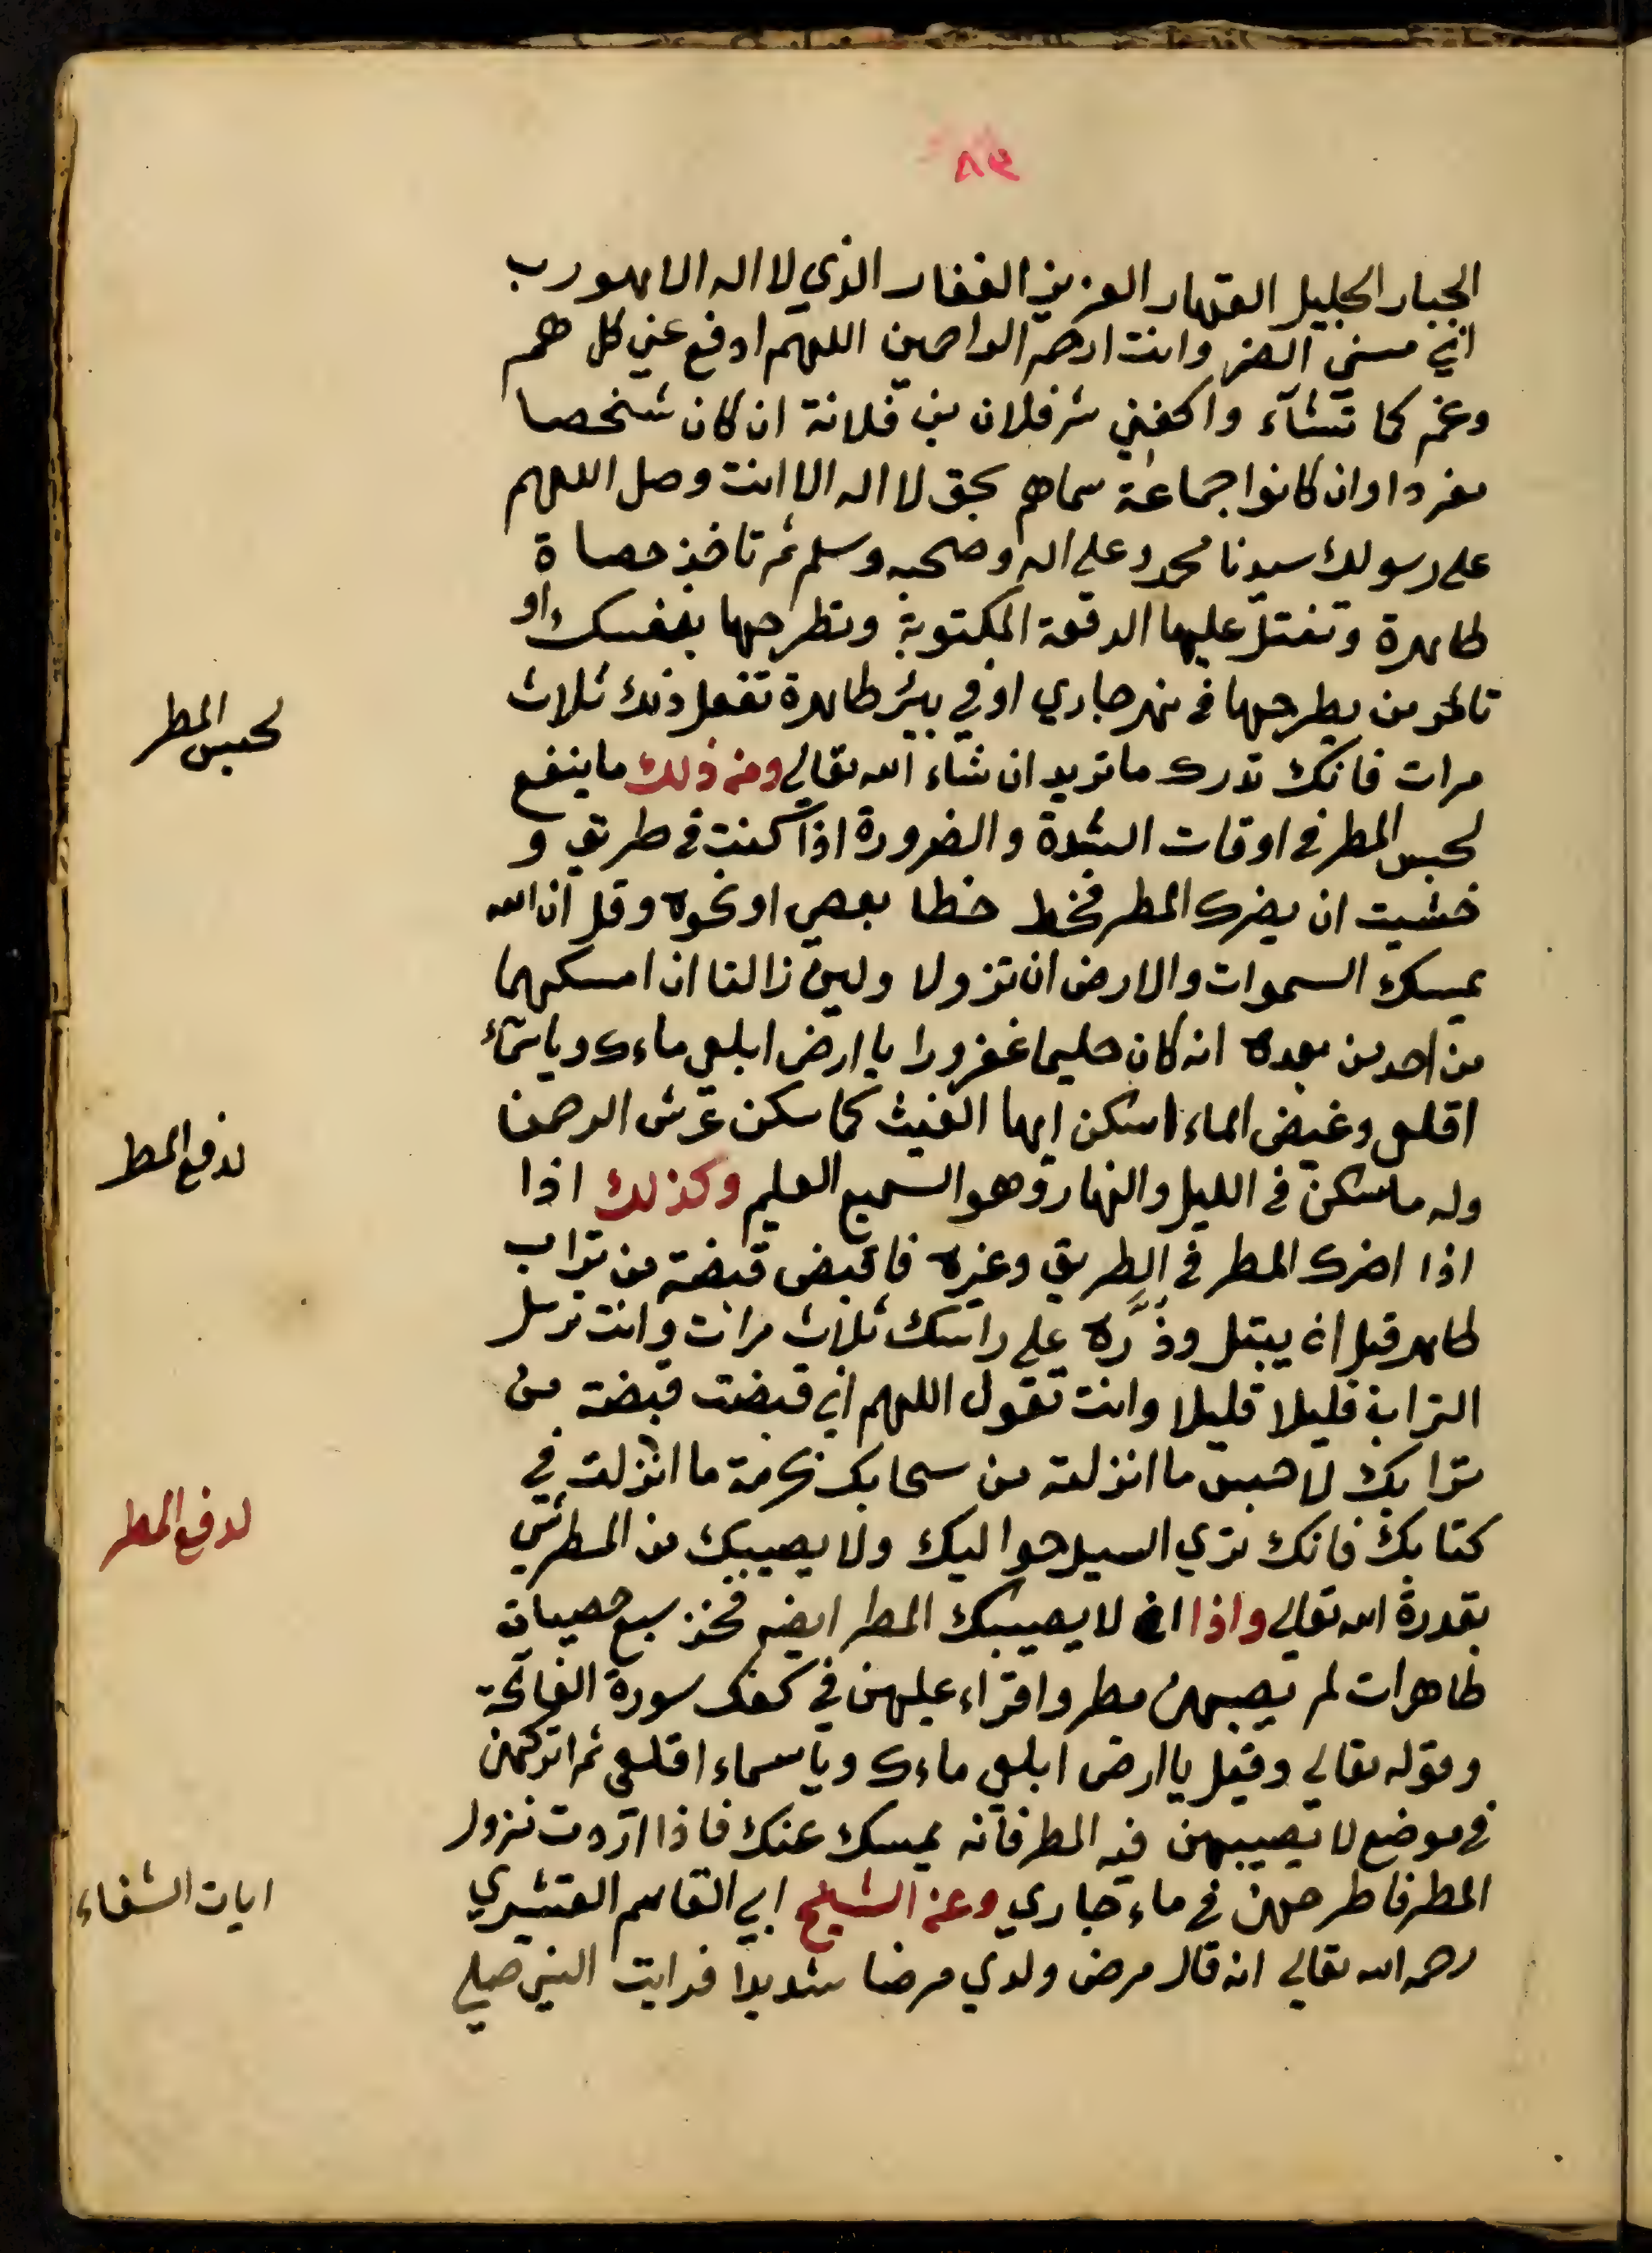 ٨٣
الجبار الجليل القهار العزيز الغفار الذي لا اله الا هو رب
اني مسني الضر وانت ارحم الراحمين اللهم ادفع عني كل هم
وغم كما تشآء واكفني شر فلان بن فلانة ان كان شخصا
مفردا وان كانوا جماعة سماهم بحق لا اله الا انت وصل اللهم
على رسولك سيدنا محمد وعلى اله وصحبه وسلم ثم تاخذ حصاة
طاهرة وتفتل عليها الرقعة المكتوبة وتطرحها بنفسك او
تالمر من يطرحها في نهر جاري او في بيئر طاهرة تفعل ذلك ثلاث
لحبس المطر
مرات فانك تدرك ما تريد ان شاء الله تعالي ومن ذلك ما ينفع
لحبس المطر في اوقات الشدة والضرورة اذا كنت في طريق و
خشيت ان يضرك المطر فخط خطا بعصي او نحوه وقل ان الله
يمسك السموات والارض ان تزولا ولين زالتا ان امسكهما
من احد من بعده انه كان حليما غفورا يا ارض ابلعي ماءك وياسمآء
اقلعي وغيض الماء اسكن ايها الغيث كما سكن عرش الرحمن
لدفع المطر
وله ما سكن في الليل والنهار وهو السميع العليم وكذلك اذا
اذا اضرك المطر في الطريق وغيره فاقبض قبضة من تراب
طاهر قبل ان يبتل وذُرَّه على راسك ثلاث مرات وانت ترسل
التراب قليلا قليلا وانت تقول اللهم اني قبضت قبضة من
ترابك لاحبس ما انزلته من سحابك بحرمة ما انزلته في
كتابك فانك تري السيل حواليك ولا يصيبك من المطر شي
لدفع المطر
بقدرة الله تعالي واذا ان لا يصيبك المطر ايضه فخذ سبع حصيات
طاهرات لم يصبهن مطر واقراء عليهن في كفك سورة الفاتحة
وقوله تعالي وقيل يا ارض ابلعي ماءك وياسماء اقلعي ثم اتركهن
في موضع لا يصيبهن فيه المطر فانه يمسك عنك فاذا اردت نزول
المطر فاطرحهن في ماء جاري وعن الشيخ ابي القاسم القشيري
ايات الشفاء
رحمه الله تعالي انه قال مرض ولدي مرضا شديدا فرايت النبي صلي